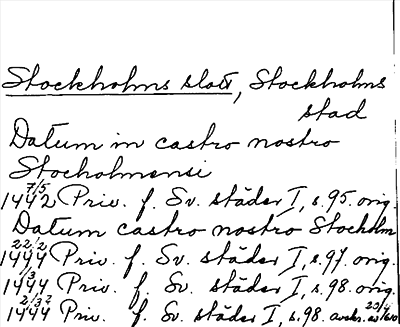 Stockholms slott, Stockholms
stad
Datum in castro nostro
Stocholmensi
7/5
1442 Priv. f. Sv. städer I, s. 95. orig.
Datum castro nostro Stocholm
22/2
1444 Priv. f. Sv. städer I, s. 97. orig.
1444 Priv. f. Sv. städer I, s. 98. orig.
1444 Priv. f. Sv. städer I, s. 98. avskr.